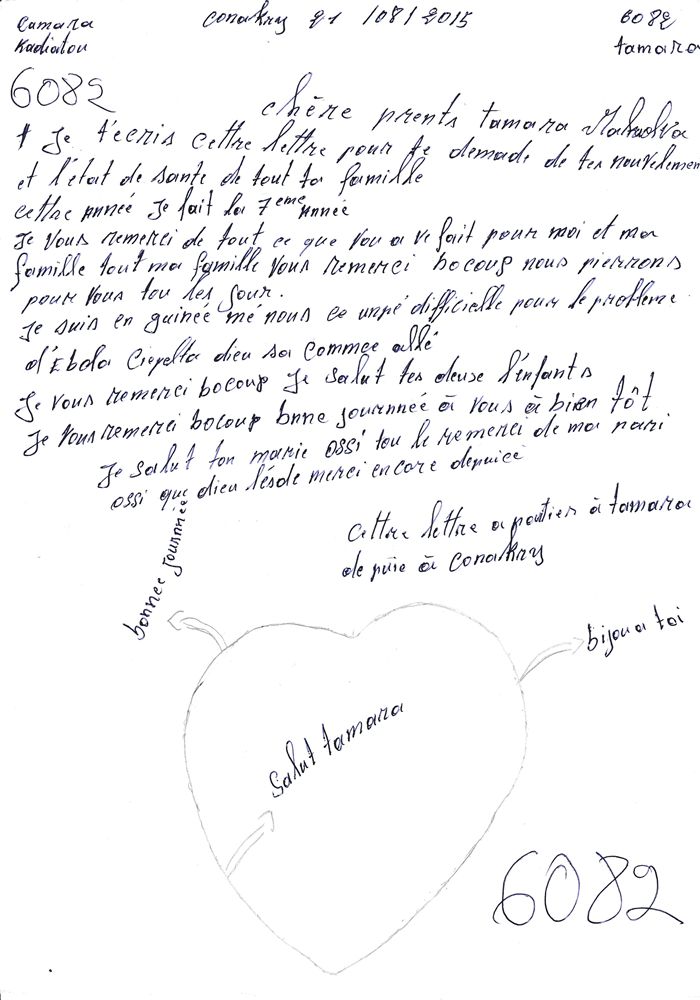 Camara
Kadiatou
Conakry 21 /08/ 2015
6082
tamara
6082
chère prents tamara
Je t'écris cettre lettre pour te demade de tes nouvelemen
et l'état de sante de tout ta famille
cettre année Je fait la 7eme année
Je vous remerci de tout ce que vou a ve fait pour moi et ma
famille tout ma famille vous remerci bocoup nous pierrons
pour vous tou les jour.
Je suis en guinée mé nous ce unpé difficielle pour le probleme
d'Ebola Ciepelta dieu sa commee allé
Je vous remerci bocoup Je salut tes deuse l'enfants
Je vous remerci bocoup bnne journneé à vous à bien tôt
Je salut ton marie ossi tou le remerci de ma pari
ossi que dieu l'ésde merci encore depuice
cettre lettre a poutier à tamara
de puie à Conakry
bonnee journneé
bijou a toi
Salut tamara
6082